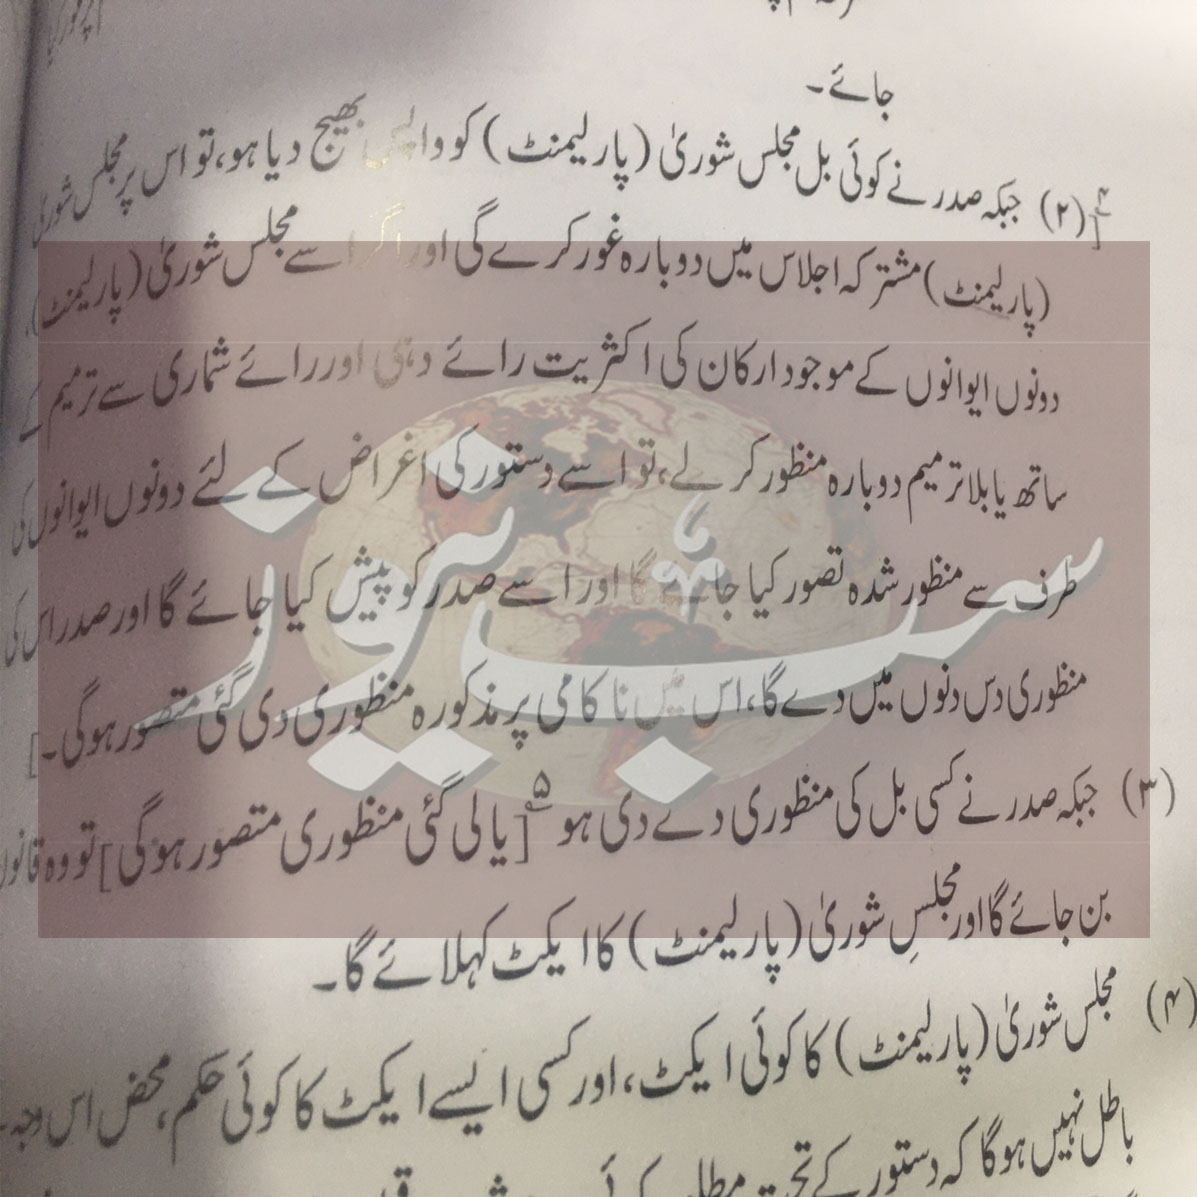 جائے۔
۴[(۲) جبکہ صدر نے کوئی بل مجلس شوریٰ (پارلیمنٹ) کو واپس بھیج دیا ہو، تو اس پر مجلس شوریٰ
(پارلیمنٹ) مشترکہ اجلاس میں دوبارہ غور کرے گی اور اگر اسے مجلس شوریٰ (پارلیمنٹ)،
دونوں ایوانوں کے موجود ارکان کی اکثریت رائے دہی اور رائے شماری سے ترمیم کے
ساتھ یا بلا ترمیم دوبارہ منظور کر لے، تو اسے دستور کی اغراض کے لئے دونوں ایوانوں کی
طرف سے منظور شدہ تصور کیا جائے گا اور اسے صدر کو پیش کیا جائے گا اور صدر اس کی
منظوری دس دنوں میں دے گا، اس میں ناکامی پر مذکورہ منظوری دی گئی متصور ہوگی۔]
(۳) جبکہ صدر نے کسی بل کی منظوری دے دی ہو ۵[یا لی گئی منظوری متصور ہوگی] تو وہ قانون
بن جائے گا اور مجلسِ شوریٰ (پارلیمنٹ) کا ایکٹ کہلائے گا۔
(۴) مجلس شوریٰ (پارلیمنٹ) کا کوئی ایکٹ، اور کسی ایسے ایکٹ کا کوئی حکم، محض اس وجہ
باطل نہیں ہوگا کہ دستور کے تحت
سب نیوز